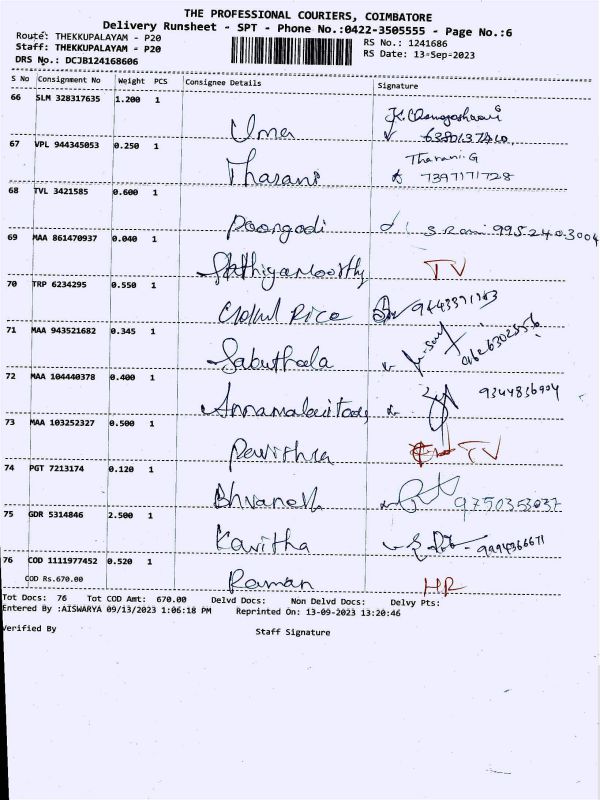 THE PROFESSIONAL COURIERS, COIMBATORE
Delivery Runsheet - SPT - Phone No.:0422-3505555 - Page No.:6
Route: THEKKUPALAYAM - P20
RS No.: 1241686
Staff: THEKKUPALAYAM - P20
RS Date: 13-Sep-2023
DRS No.: DCJB124168606
S No Consignment No Weight PCS Consignee Details Signature
66 SLM 328317635 1.200 1
Uma
67 VPL 944345053 0.250 1
Tharani G
Tharani 7397171728
68 TVL 3421585 0.600 1
Poongodi 9952403004
69 MAA 861470937 0.040 1
Sathiyamoorthy TV
70 TRP 6234295 0.550 1
Rice
71 MAA 943521682 0.345 1
72 MAA 104440378 0.400 1
9344836904
73 MAA 103252327 0.500 1
Pavithra TV
74 PGT 7213174 0.120 1
9750353037
75 GDR 5314846 2.500 1
Kavitha 9994366671
76 COD 1111977452 0.520 1
COD Rs.670.00
Raman HR
Tot Docs: 76 Tot COD Amt: 670.00 Delvd Docs: Non Delvd Docs: Delvy Pts:
Entered By :AISWARYA 09/13/2023 1:06:18 PM Reprinted On: 13-09-2023 13:20:46
Verified By
Staff Signature